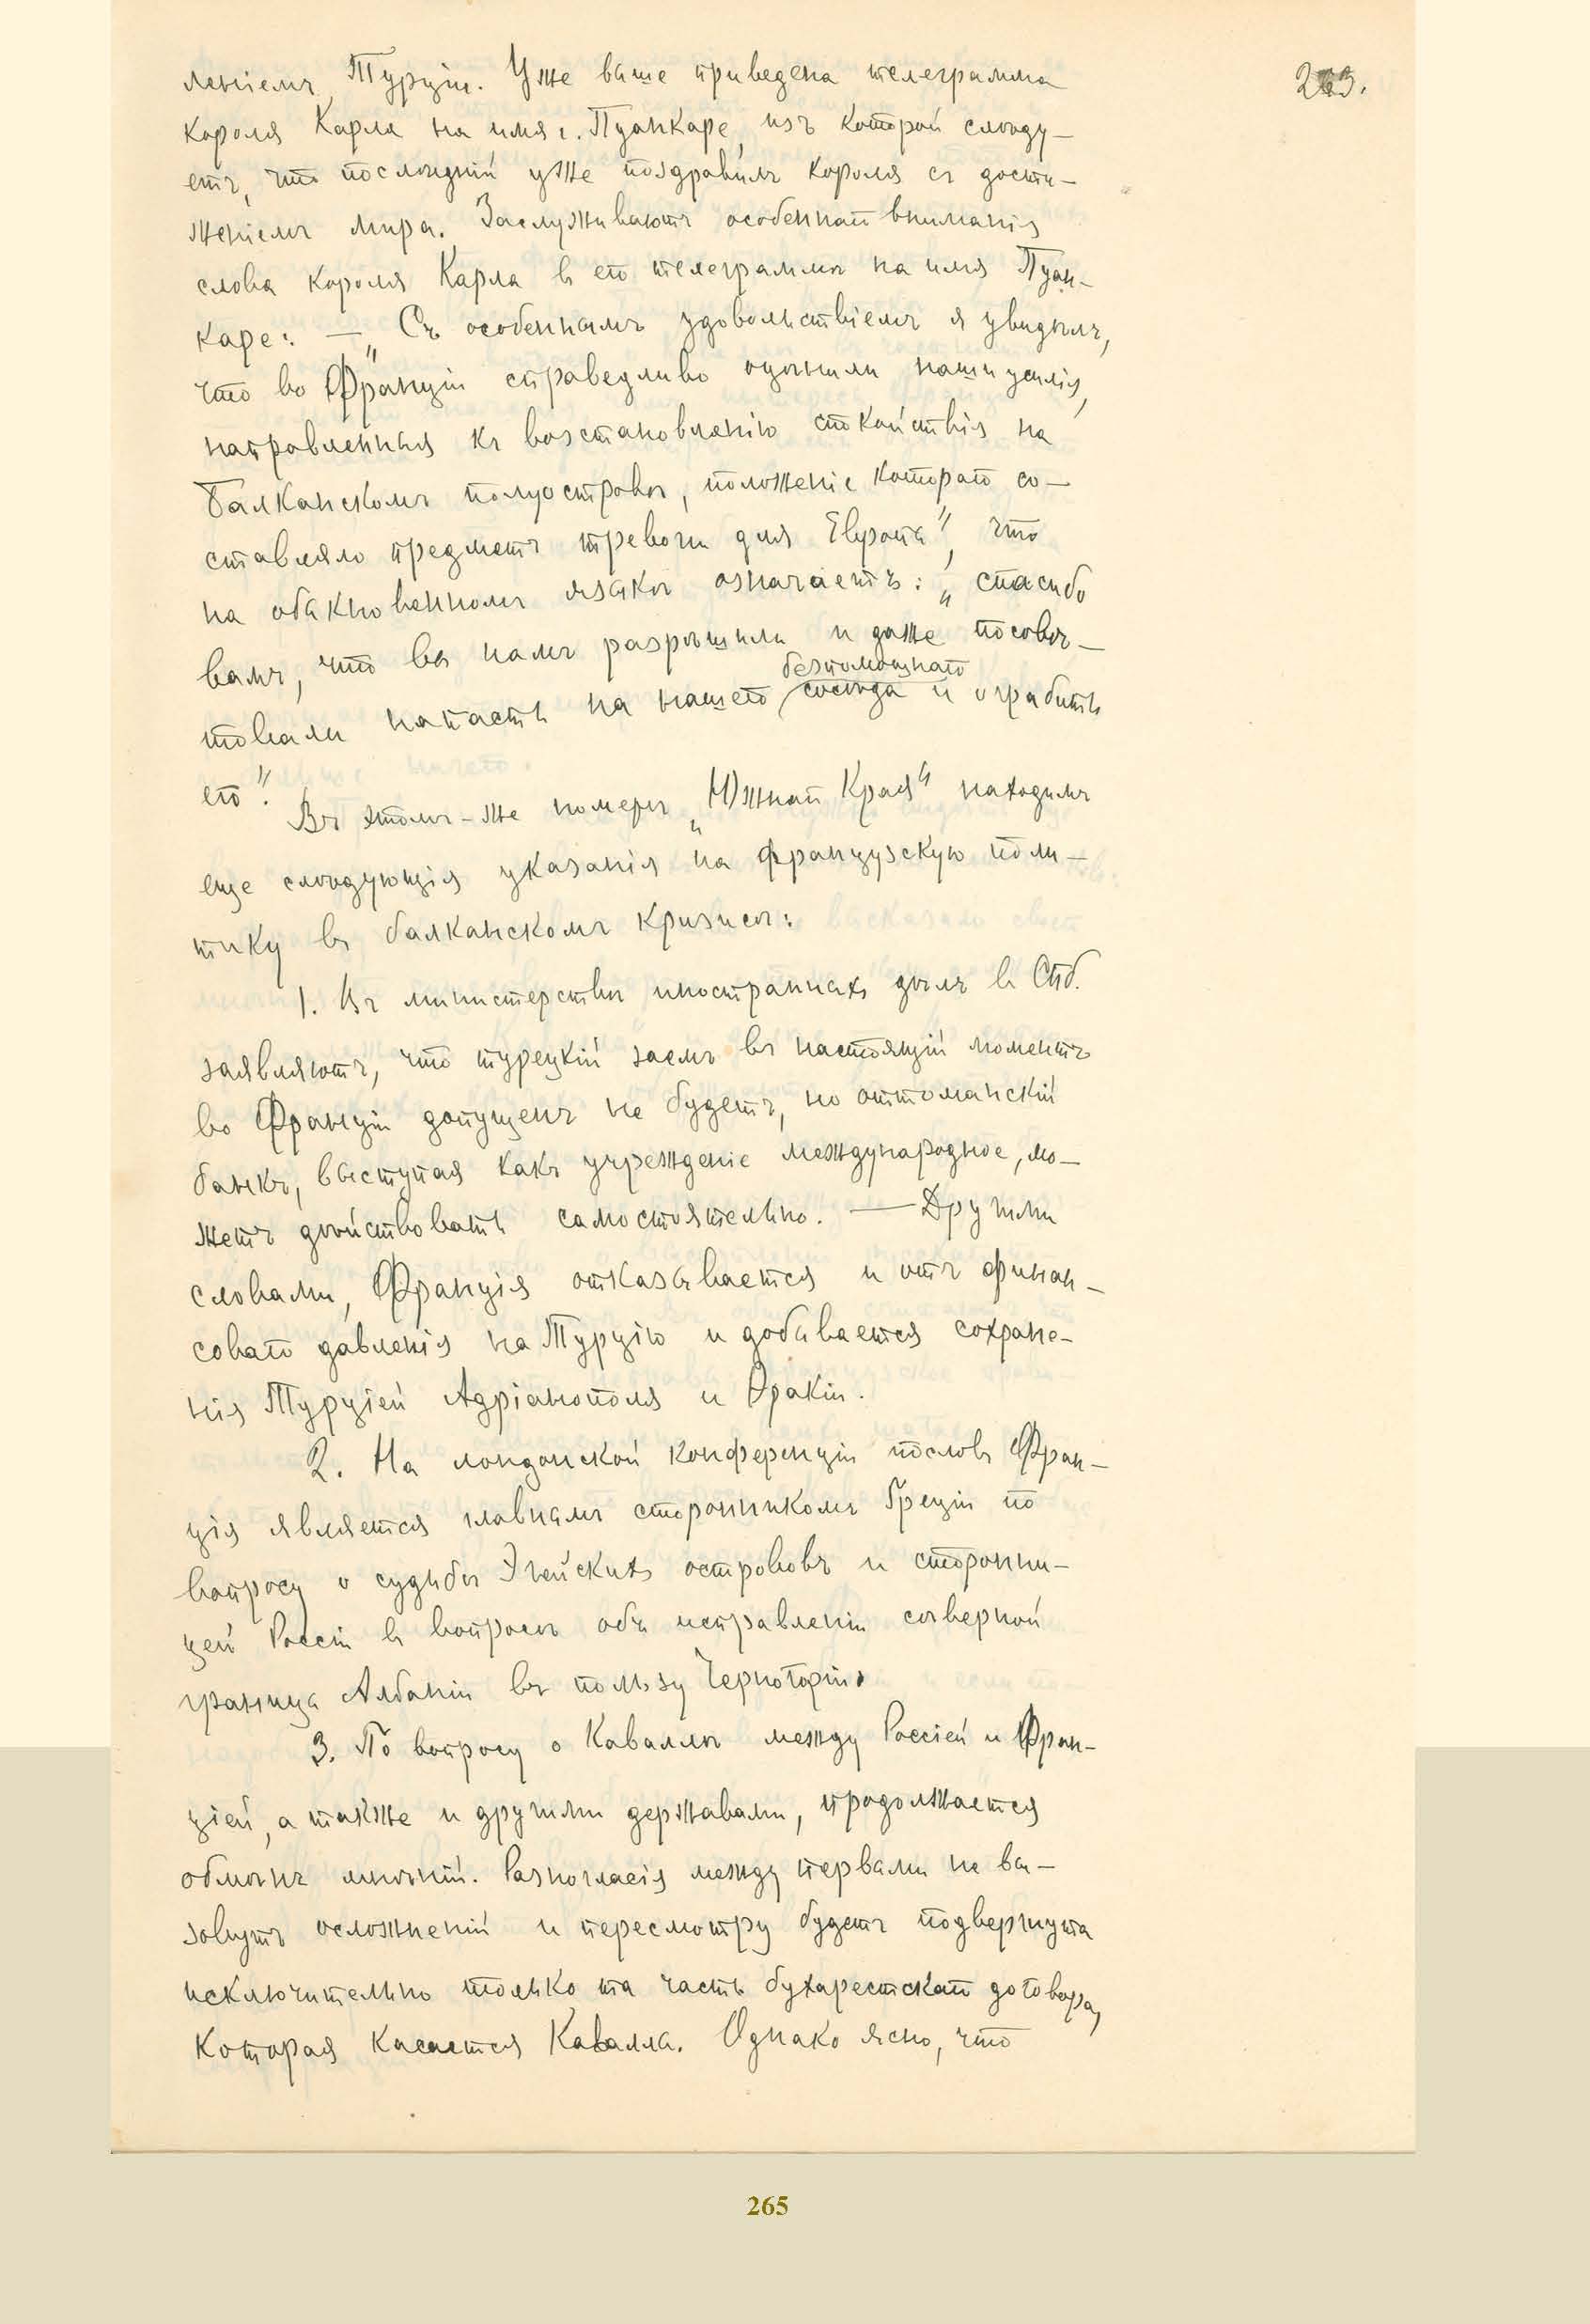 263.
леніемъ Турціи. Уже выше приведена телеграмма
короля Карла на имя г. Пуанкаре, изъ которой слѣду-
етъ, что послѣдній уже поздравилъ короля съ дости-
женіемъ мира. Заслуживаютъ особеннаго вниманія
слова короля Карла въ его телеграммѣ на имя Пуан-
каре: — „Съ особеннымъ удовольствіемъ я увидѣлъ,
что во Франціи справедливо оцѣнили наши усилія,
направленныя къ возстановленію спокойствія на
Балканскомъ полуостровѣ, положеніе котораго со-
ставляло предметъ тревоги для Европы", что
на обыкновенномъ языкѣ означаетъ: „спасибо
вамъ, что вы намъ разрѣшили и даже посовѣ-
безпомощнаго
товали напасть на нашего сосѣда и ограбить
его".
Въ этомъ-же номерѣ „Южнаго Края" находимъ
еще слѣдующія указанія на французскую поли-
тику въ балканскомъ кризисѣ:
1. Въ министерствѣ иностранныхъ дѣлъ въ Спб.
заявляютъ, что турецкій заемъ въ настоящій моментъ
во Франціи допущенъ не будетъ, но оттоманскій
банкъ, выступая какъ учрежденіе международное, мо-
жетъ дѣйствовать самостоятельно. — Другими
словами, Франція отказывается и отъ финан-
соваго давленія на Турцію и добивается сохране-
нія Турціей Адріанополя и Ѳракіи.
2. На лондонской конференціи пословъ Фран-
ція является главнымъ сторонникомъ Греціи по
вопросу о судьбѣ Эгейскихъ острововъ и сторонни-
цей Россіи въ вопросѣ объ исправленіи сѣверной
границы Албаніи въ пользу Черногоріи.
3. По вопросу о Каваллѣ между Россіей и Фран-
ціей, а также и другими державами, продолжается
обмѣнъ мнѣній. Разногласія между первыми не вы-
зовутъ осложненій и пересмотру будетъ подвергнута
исключительно только та часть бухарестскаго договора,
которая касается Кавалла. Однако ясно, что
265